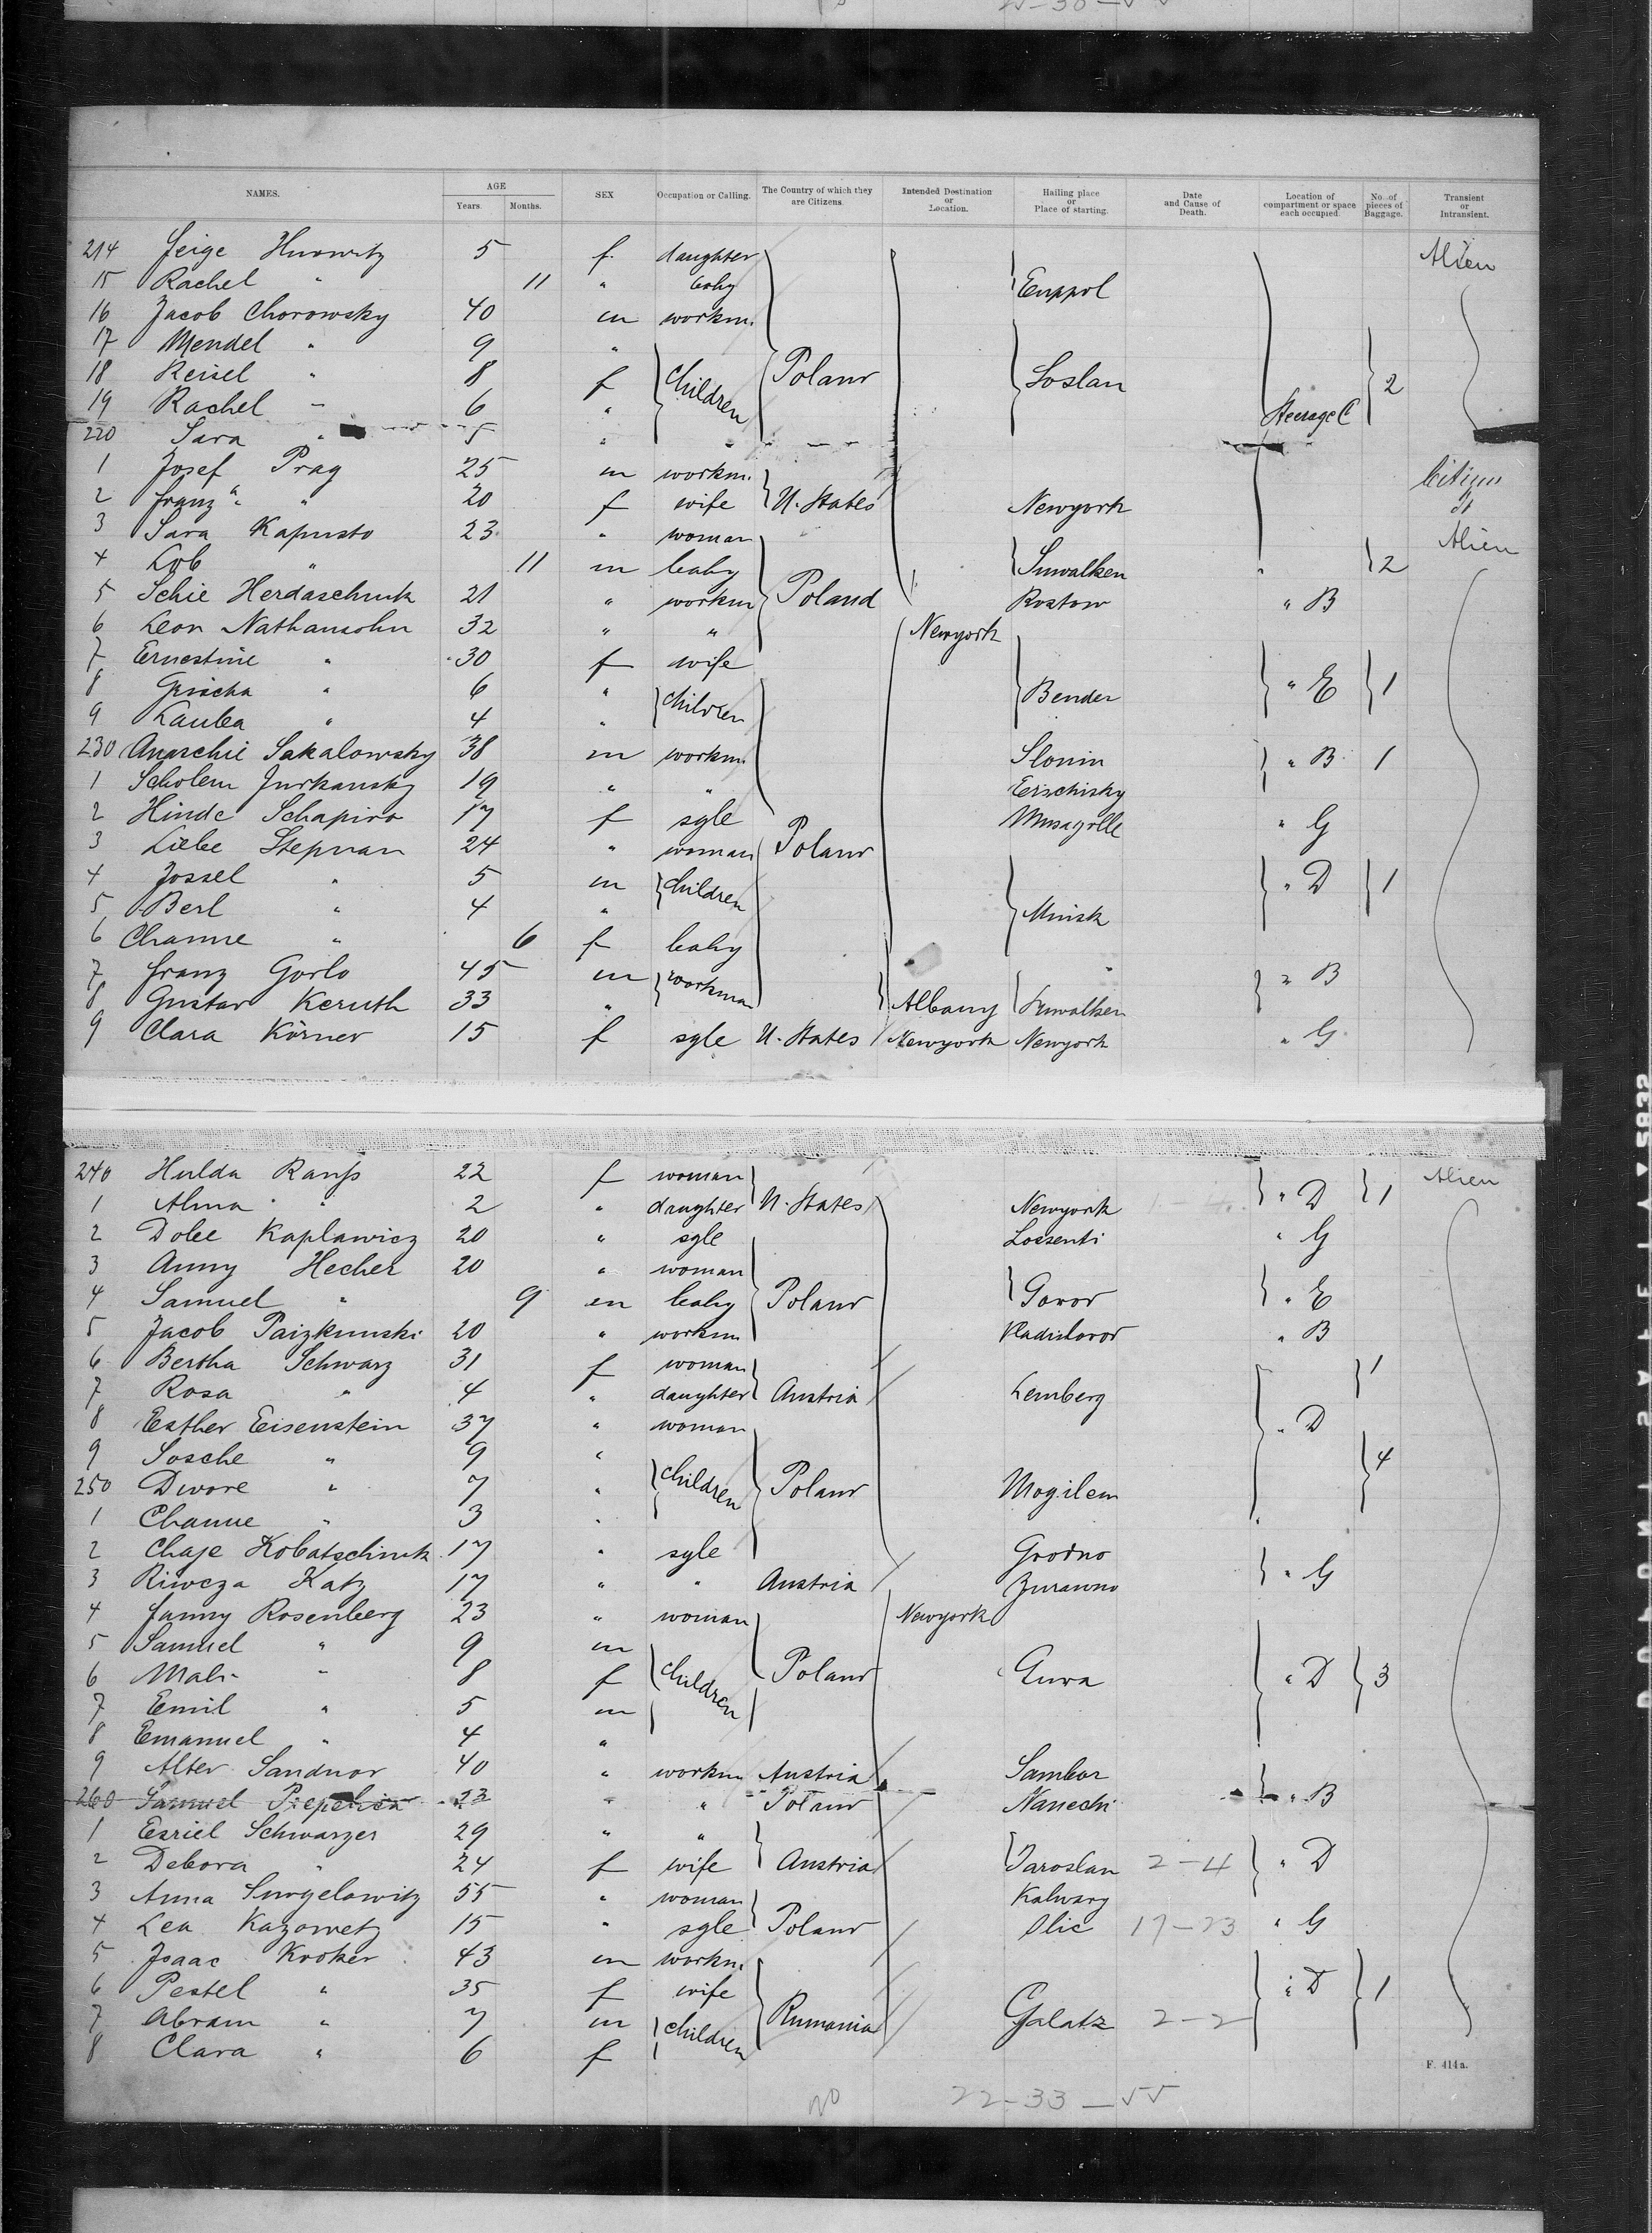 NAMES. AGE Years. Months. SEX Occupation or Calling. The Country of which they are Citizens. Intended Destination or Location. Hailing place or Place of starting. Date and Cause of Death. Location of compartment or space each occupied. No. of pieces of Baggage. Transient or Intransient.
214 Feige Hurwitz 5 f. daughter Alien
15 Rachel " 11 " baby Euppol
16 Jacob Chorowsky 40 m workm.
17 Mendel " 9 "
18 Reisel " 8 f Children Poland Loslau 2
19 Rachel " 6 " Steerage C
220 Sara " 5 " "
1 Josef Prag 25 m workm. Citizen
2 Franz " 20 f wife U. States Newyork
3 Sara Kapusto 23 " woman Alien
4 Lob " 11 m baby Suwalken " 2
5 Schie Herdaschnik 21 " workm Poland Rostow " B
6 Leon Nathansohn 32 " " Newyork
7 Ernestine " 30 f wife
8 Grischa " 6 " Children Bender " E 1
9 Lauba " 4 "
230 Anaschie Sakalowsky 38 m workm. Slonin " B 1
1 Scholem Jurkansky 19 " " Eischisky
2 Hinde Schapiro 17 f sgle " G
3 Liebe Stepman 24 " woman Poland
4 Jossel " 5 m Children " D 1
5 Berl " 4 " Minsk
6 Channe " 6 f baby
7 Franz Gorlo 45 m workman " B
8 Gustav Keruth 33 " Albany Suwalken
9 Clara Körner 15 f sgle U. States Newyork Newyork " G
240 Hulda 22 f woman Alien
1 Alma " 2 " daughter U. States Newyork " D 1
2 Dobe Kaplawicz 20 " sgle Lossenti " G
3 Anny Hecher 20 " woman
4 Samuel " 9 m baby Poland Gowor " E
5 Jacob Paizkunski 20 " workm Vladislavod " B
6 Bertha Schwarz 31 f woman 1
7 Rosa " 4 " daughter Austria Lemberg
8 Esther Eisenstein 37 " woman " D
9 Sosche " 9 " 4
250 Dwore " 7 " Children Poland Mogilem
1 Channe " 3 "
2 Chaje Kobatschnik 17 " sgle Grodno
3 Riwcza Katz 17 " " Austria Zurawno " G
4 Fanny Rosenberg 23 " woman Newyork
5 Samuel " 9 m
6 Mali " 8 f Children Poland " D 3
7 Emil " 5 m
8 Emanuel " 4 "
9 Alter Sandnor 40 " workm Austria Sambor
260 Samuel Prepelica 23 " " Poland Nanechi " B
1 Esriel Schwarzer 29 " "
2 Debora " 24 f wife Austria Jaroslau 2-4 " D
3 Anna Surgelowitz 55 " woman Kalwary
4 Lea Kazowetz 15 " sgle Poland Olic 17-23 " G
5 Isaac Kroker 43 m workm.
6 Pestel " 35 f wife " D 1
7 Abram " 7 m Children Rumania Galatz 2-2
8 Clara " 6 f
F. 414a.
No 22-33-